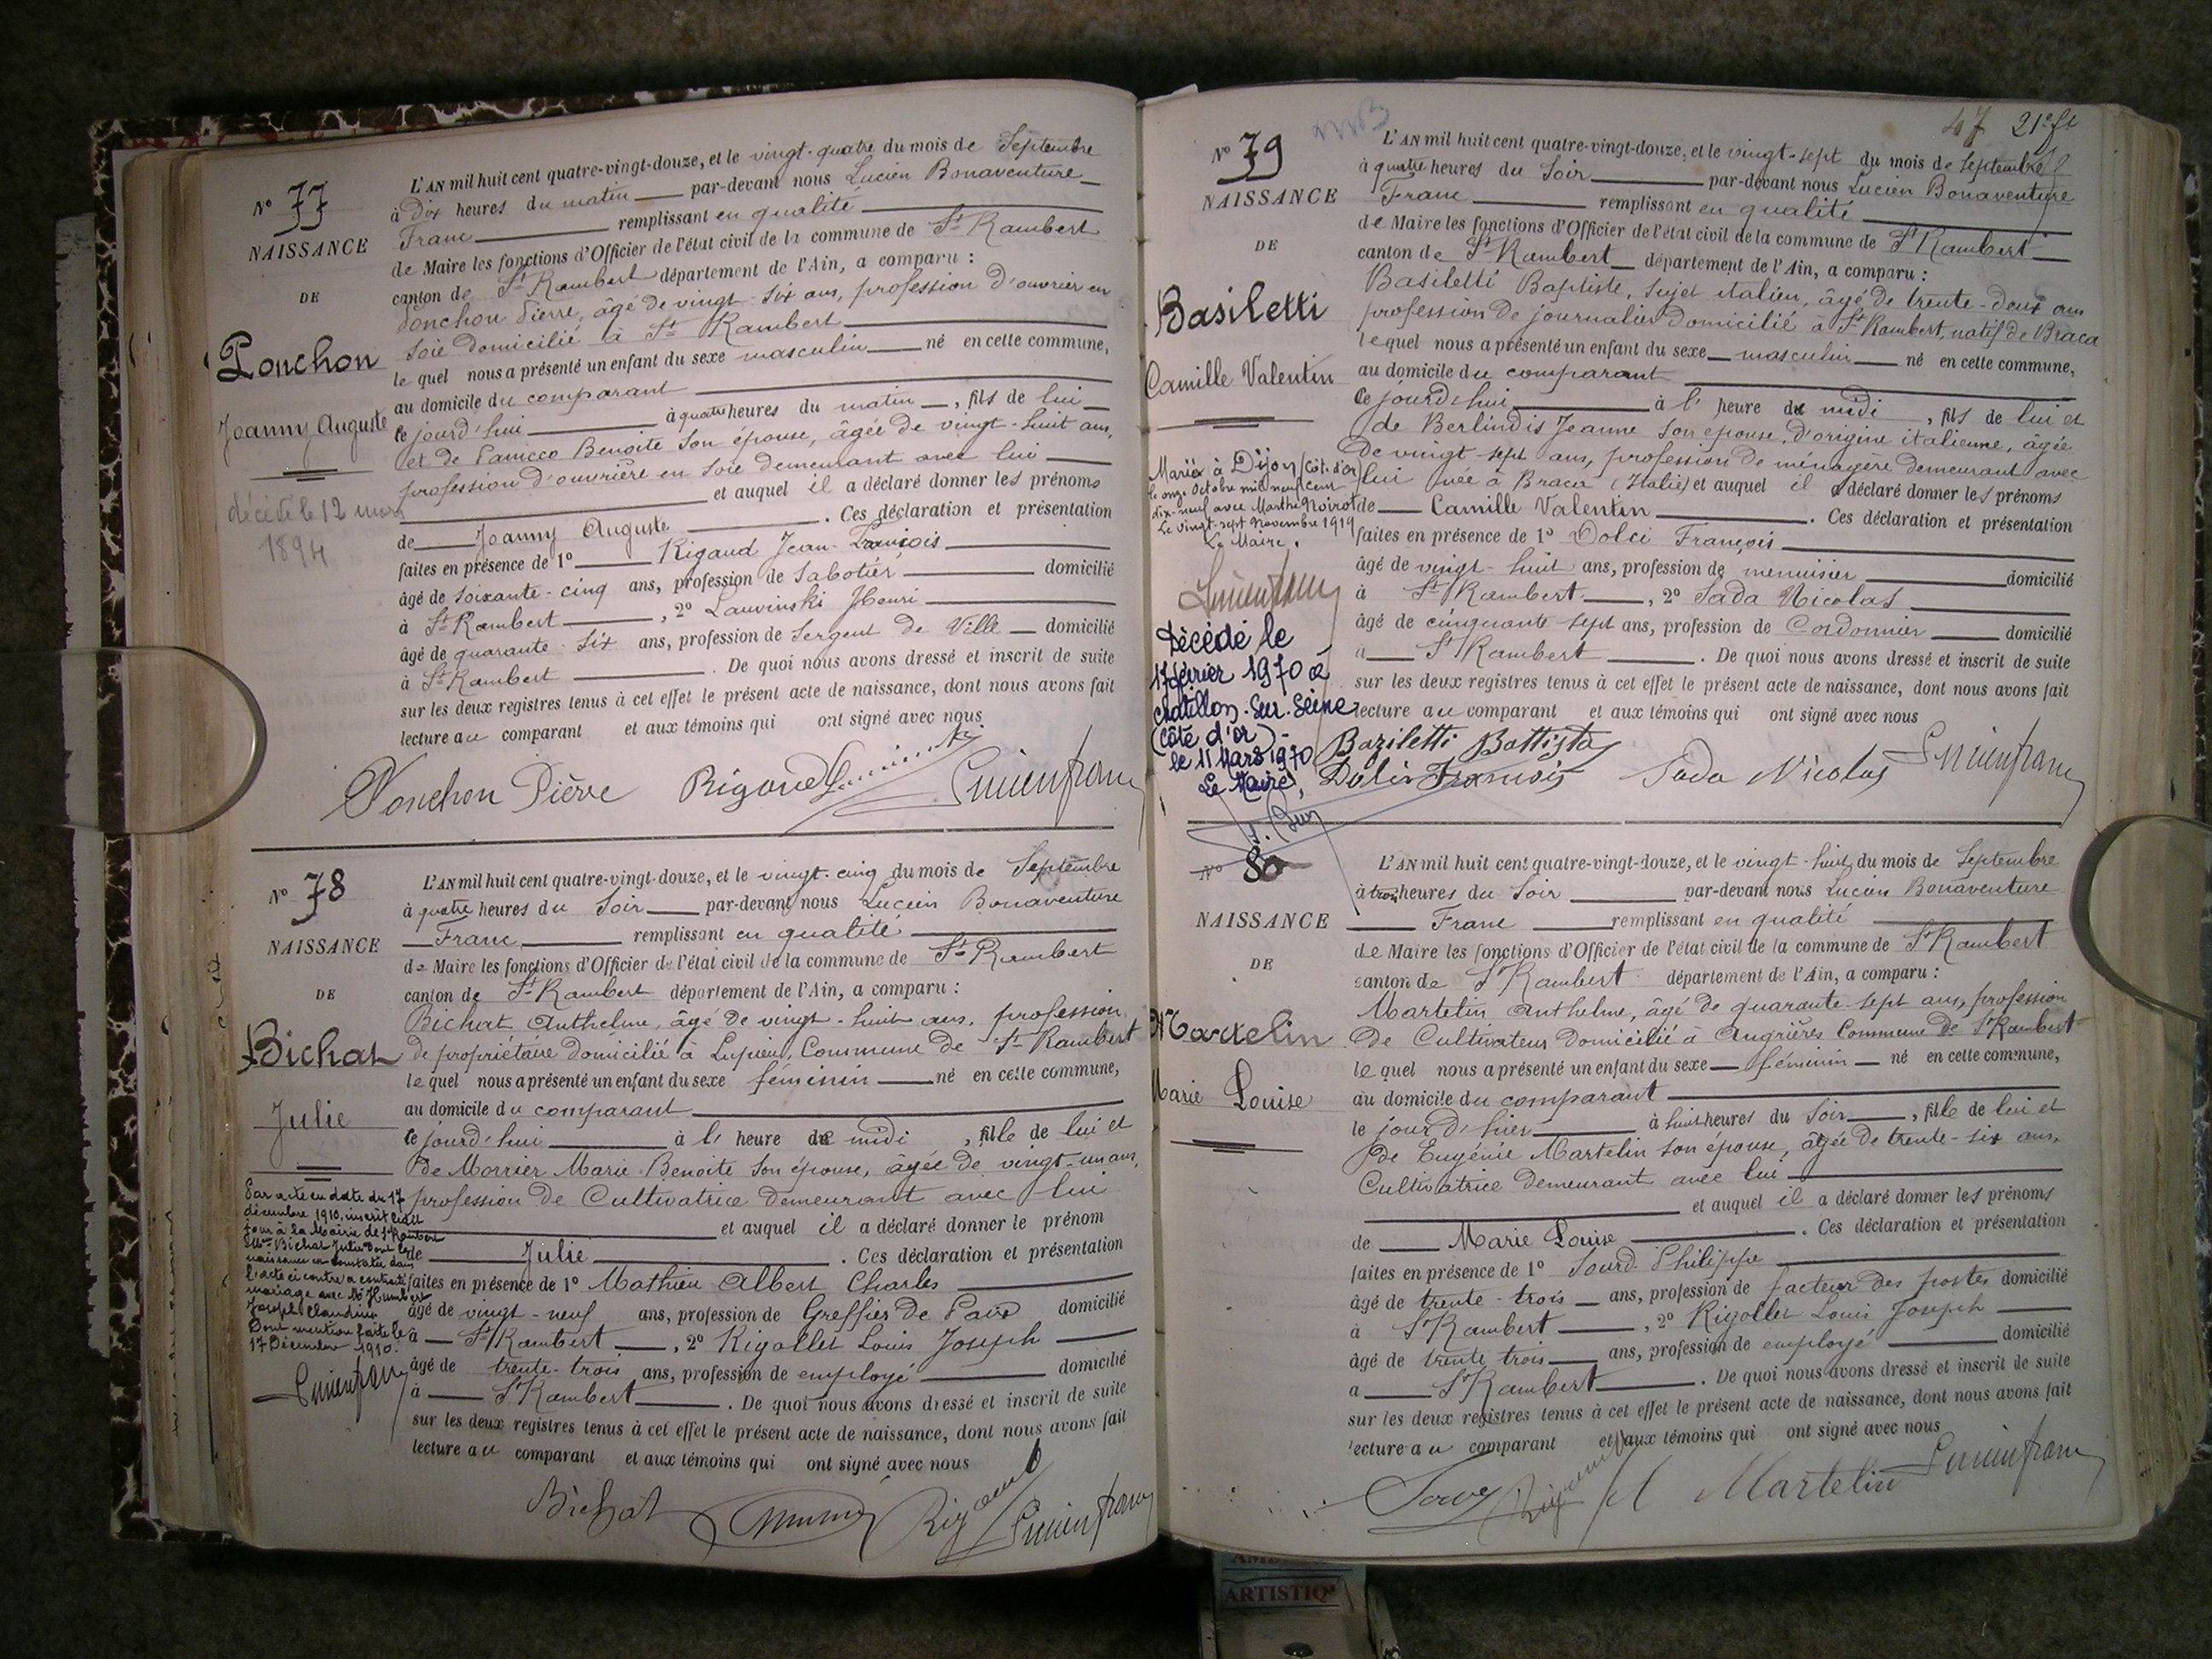 N° 77
NAISSANCE
DE
Ponchon
Joanny Auguste
décédé le 12 mars
1894
L'AN mil huit cent quatre-vingt-douze, et le vingt-quatre du mois de Septembre
à Dix heures du matin par-devant nous Lucien Bonaventure
Franc remplissant en qualité
de Maire les fonctions d'Officier de l'état civil de la commune de St Rambert
canton de St Rambert département de l'Ain, a comparu :
Ponchon Pierre, âgé de vingt-six ans, profession d'ouvrier en
soie domicilié à St Rambert
le quel nous a présenté un enfant du sexe masculin né en cette commune,
au domicile du comparant
ce jourd'hui à quatre heures du matin, fils de lui
et de Benoite son épouse, âgée de vingt-huit ans,
profession d'ouvrière en soie demeurant avec lui
et auquel il a déclaré donner les prénoms
de Joanny Auguste. Ces déclaration et présentation
faites en présence de 1° Rigaud Jean-François
âgé de soixante-cinq ans, profession de Sabotier domicilié
à St Rambert, 2° Lauvinski Henri
âgé de quarante-six ans, profession de Sergent de Ville domicilié
à St Rambert. De quoi nous avons dressé et inscrit de suite
sur les deux registres tenus à cet effet le présent acte de naissance, dont nous avons fait
lecture au comparant et aux témoins qui ont signé avec nous
Ponchon Pière Rigaud Lucien franc
N° 78
NAISSANCE
DE
Bichat
Julie
Par acte en date du 17
décembre 1910, inscrit ledit
jour à la Mairie de St Rambert
Mlle Bichat Julie dont la
naissance est constatée dans
l'acte ci contre a contracté
mariage avec Mr Humbert
Joseph Claudius
Dont mention faite le
17 Décembre 1910.
Lucien franc
L'AN mil huit cent quatre-vingt-douze, et le vingt-cinq du mois de Septembre
à quatre heures du Soir par-devant nous Lucien Bonaventure
Franc remplissant en qualité
de Maire les fonctions d'Officier de l'état civil de la commune de St Rambert
canton de St Rambert département de l'Ain, a comparu :
Bichat Anthelme, âgé de vingt-huit ans, profession
de propriétaire domicilié à Lupieu, Commune de St Rambert
le quel nous a présenté un enfant du sexe féminin né en cette commune,
au domicile du comparant
ce jourd'hui à l'heure de midi, fille de lui et
de Morrier Marie Benoite son épouse, âgée de vingt-un ans,
profession de Cultivatrice demeurant avec lui
et auquel il a déclaré donner le prénom
de Julie. Ces déclaration et présentation
faites en présence de 1° Mathieu Albert Charles
âgé de vingt-neuf ans, profession de Greffier de Paix domicilié
à St Rambert, 2° Rigollet Louis Joseph
âgé de trente-trois ans, profession de employé domicilié
à St Rambert. De quoi nous avons dressé et inscrit de suite
sur les deux registres tenus à cet effet le présent acte de naissance, dont nous avons fait
lecture au comparant et aux témoins qui ont signé avec nous
Bichat Lucien franc
47 21e ft
N° 79
NAISSANCE
DE
Basiletti
Camille Valentin
Marié à Dijon (Côte d'or)
le onze Octobre mil neuf cent
dix-neuf avec Marthe Noirot
Le vingt-sept Novembre 1919
Le Maire.
Lucien franc
Décédé le
17 février 1970 à
Chatillon-Sur-Seine
(Côte d'or)-
le 11 Mars 1970
Le Maire,
L'AN mil huit cent quatre-vingt-douze, et le vingt-sept du mois de Septembre
à quatre heures du Soir par-devant nous Lucien Bonaventure
Franc remplissant en qualité
de Maire les fonctions d'Officier de l'état civil de la commune de St Rambert
canton de St Rambert département de l'Ain, a comparu :
Basiletti Baptiste, sujet italien, âgé de trente-deux ans
profession de journalier domicilié à St Rambert, natif de Braca
le quel nous a présenté un enfant du sexe masculin né en cette commune,
au domicile du comparant
ce jourd'hui à l'heure de midi, fils de lui et
de Berlindis Jeanne son épouse, d'origine italienne, âgée
de vingt-sept ans, profession de ménagère demeurant avec
lui née à Braca (Italie) et auquel il a déclaré donner les prénoms
de Camille Valentin. Ces déclaration et présentation
faites en présence de 1° Dolci François
âgé de vingt-huit ans, profession de menuisier domicilié
à St Rambert, 2° Sada Nicolas
âgé de cinquante-sept ans, profession de Cordonnier domicilié
a St Rambert. De quoi nous avons dressé et inscrit de suite
sur les deux registres tenus à cet effet le présent acte de naissance, dont nous avons fait
lecture au comparant et aux témoins qui ont signé avec nous
Baziletti Battista
Dolci François Sada Nicolas Lucien franc
N° 80
NAISSANCE
DE
Martelin
Marie Louise
L'AN mil huit cent quatre-vingt-douze, et le vingt-huit du mois de Septembre
à trois heures du Soir par-devant nous Lucien Bonaventure
Franc remplissant en qualité
de Maire les fonctions d'Officier de l'état civil de la commune de St Rambert
canton de St Rambert département de l'Ain, a comparu :
Martelin Anthelme, âgé de quarante-sept ans, profession
de Cultivateur domicilié à Angrières Commune de St Rambert
le quel nous a présenté un enfant du sexe féminin né en cette commune,
au domicile du comparant
le jour d'hier à huit heures du Soir, fille de lui et
de Eugénie Martelin son épouse, âgée de trente-six ans,
Cultivatrice demeurant avec lui
et auquel il a déclaré donner les prénoms
de Marie Louise. Ces déclaration et présentation
faites en présence de 1° Sourd Philippe
âgé de trente-trois ans, profession de facteur des postes domicilié
à St Rambert, 2° Rigollet Louis Joseph
âgé de trente trois ans, profession de employé domicilié
a St Rambert. De quoi nous avons dressé et inscrit de suite
sur les deux registres tenus à cet effet le présent acte de naissance, dont nous avons fait
lecture au comparant et aux témoins qui ont signé avec nous
Martelin Lucien franc
ARTISTIQ